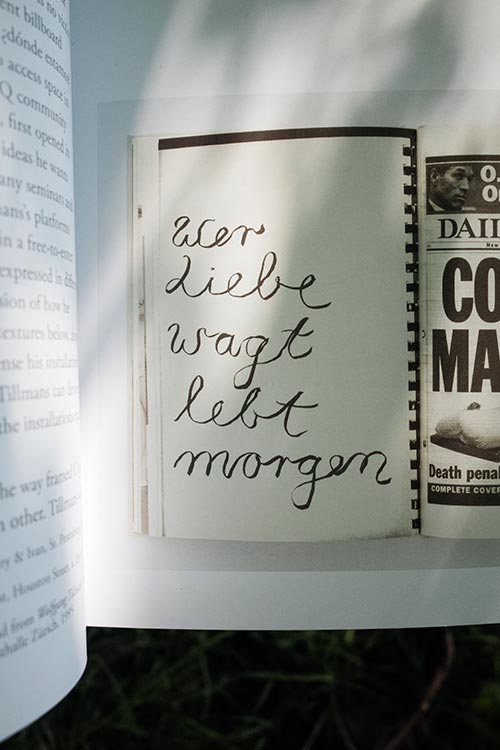 ent billboard
¿dónde estamos
access space in
Q community
first opened in
ideas he wants
any seminars and
mans's platforms
in a free-to-enter
expressed in
sion of how he
textures below,
ense his installation
Tillmans can
the installations
he way framed
n other. Tillmans
ry & Ivan, St. Petersburg
Houston Street,
d from Wolfgang
Zürich,
Wer
Liebe
wagt
lebt
morgen
O.
DAIL
CO
MA
Death penal
COMPLETE COVER